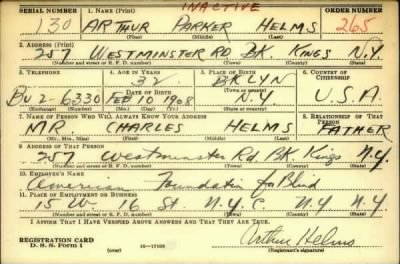 INACTIVE
SERIAL NUMBER 1. NAME (Print) ORDER NUMBER
130 ARTHUR PARKER HELMS 265
(First) (Middle) (Last)
2. ADDRESS (Print)
257 WESTMINSTER RD BK. KINGS N.Y.
(Number and street or R. F. D. number) (Town) (County) (State)
3. TELEPHONE 4. AGE IN YEARS 5. PLACE OF BIRTH 6. COUNTRY OF CITIZENSHIP
32 BKLYN
DATE OF BIRTH (Town or county)
BU 2-6330 FEB 10 1908 N.Y. U.S.A.
(Exchange) (Number) (Mo.) (Day) (Yr.) (State or country)
7. NAME OF PERSON WHO WILL ALWAYS KNOW YOUR ADDRESS 8. RELATIONSHIP OF THAT PERSON
MR. CHARLES HELMS FATHER
(Mr., Mrs., Miss) (First) (Middle) (Last)
9. ADDRESS OF THAT PERSON
257 Westminster Rd. BK. Kings N.Y.
(Number and street or R. F. D. number) (Town) (County) (State)
10. EMPLOYER'S NAME
American Foundation for Blind
11. PLACE OF EMPLOYMENT OR BUSINESS
15 W. 16 St. N.Y.C. N.Y. N.Y.
(Number and street or R. F. D. number) (Town) (County) (State)
I AFFIRM THAT I HAVE VERIFIED ABOVE ANSWERS AND THAT THEY ARE TRUE.
REGISTRATION CARD
D. S. S. Form 1 (over) 16-17105
Arthur Helms
(Registrant's signature)